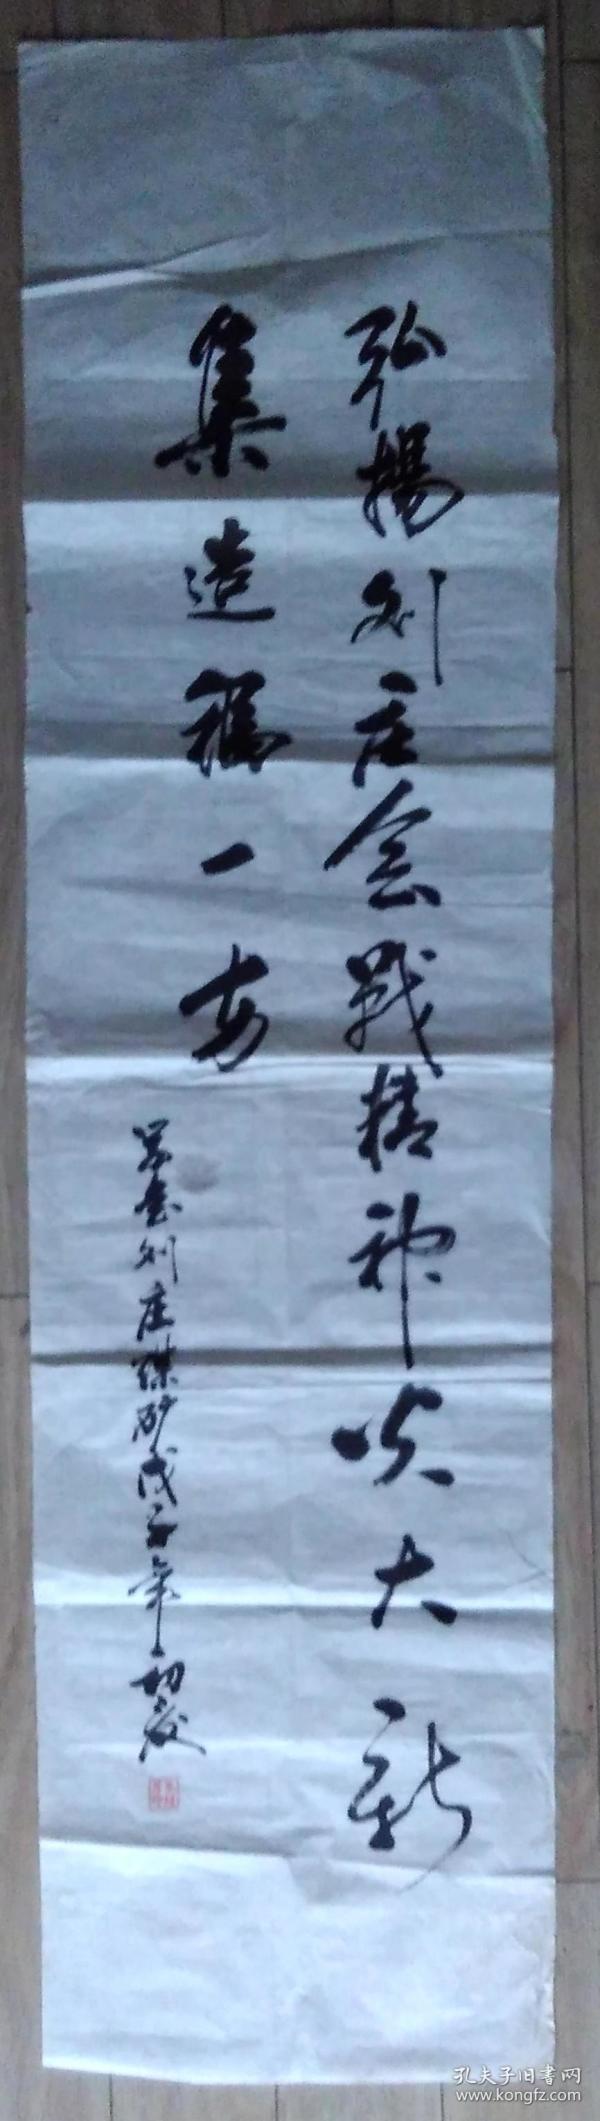 弘揚刘庄会战精神火大新
集造福一方
刘庄煤矿戊子年初夏
孔夫子旧書网
www.kongfz.com